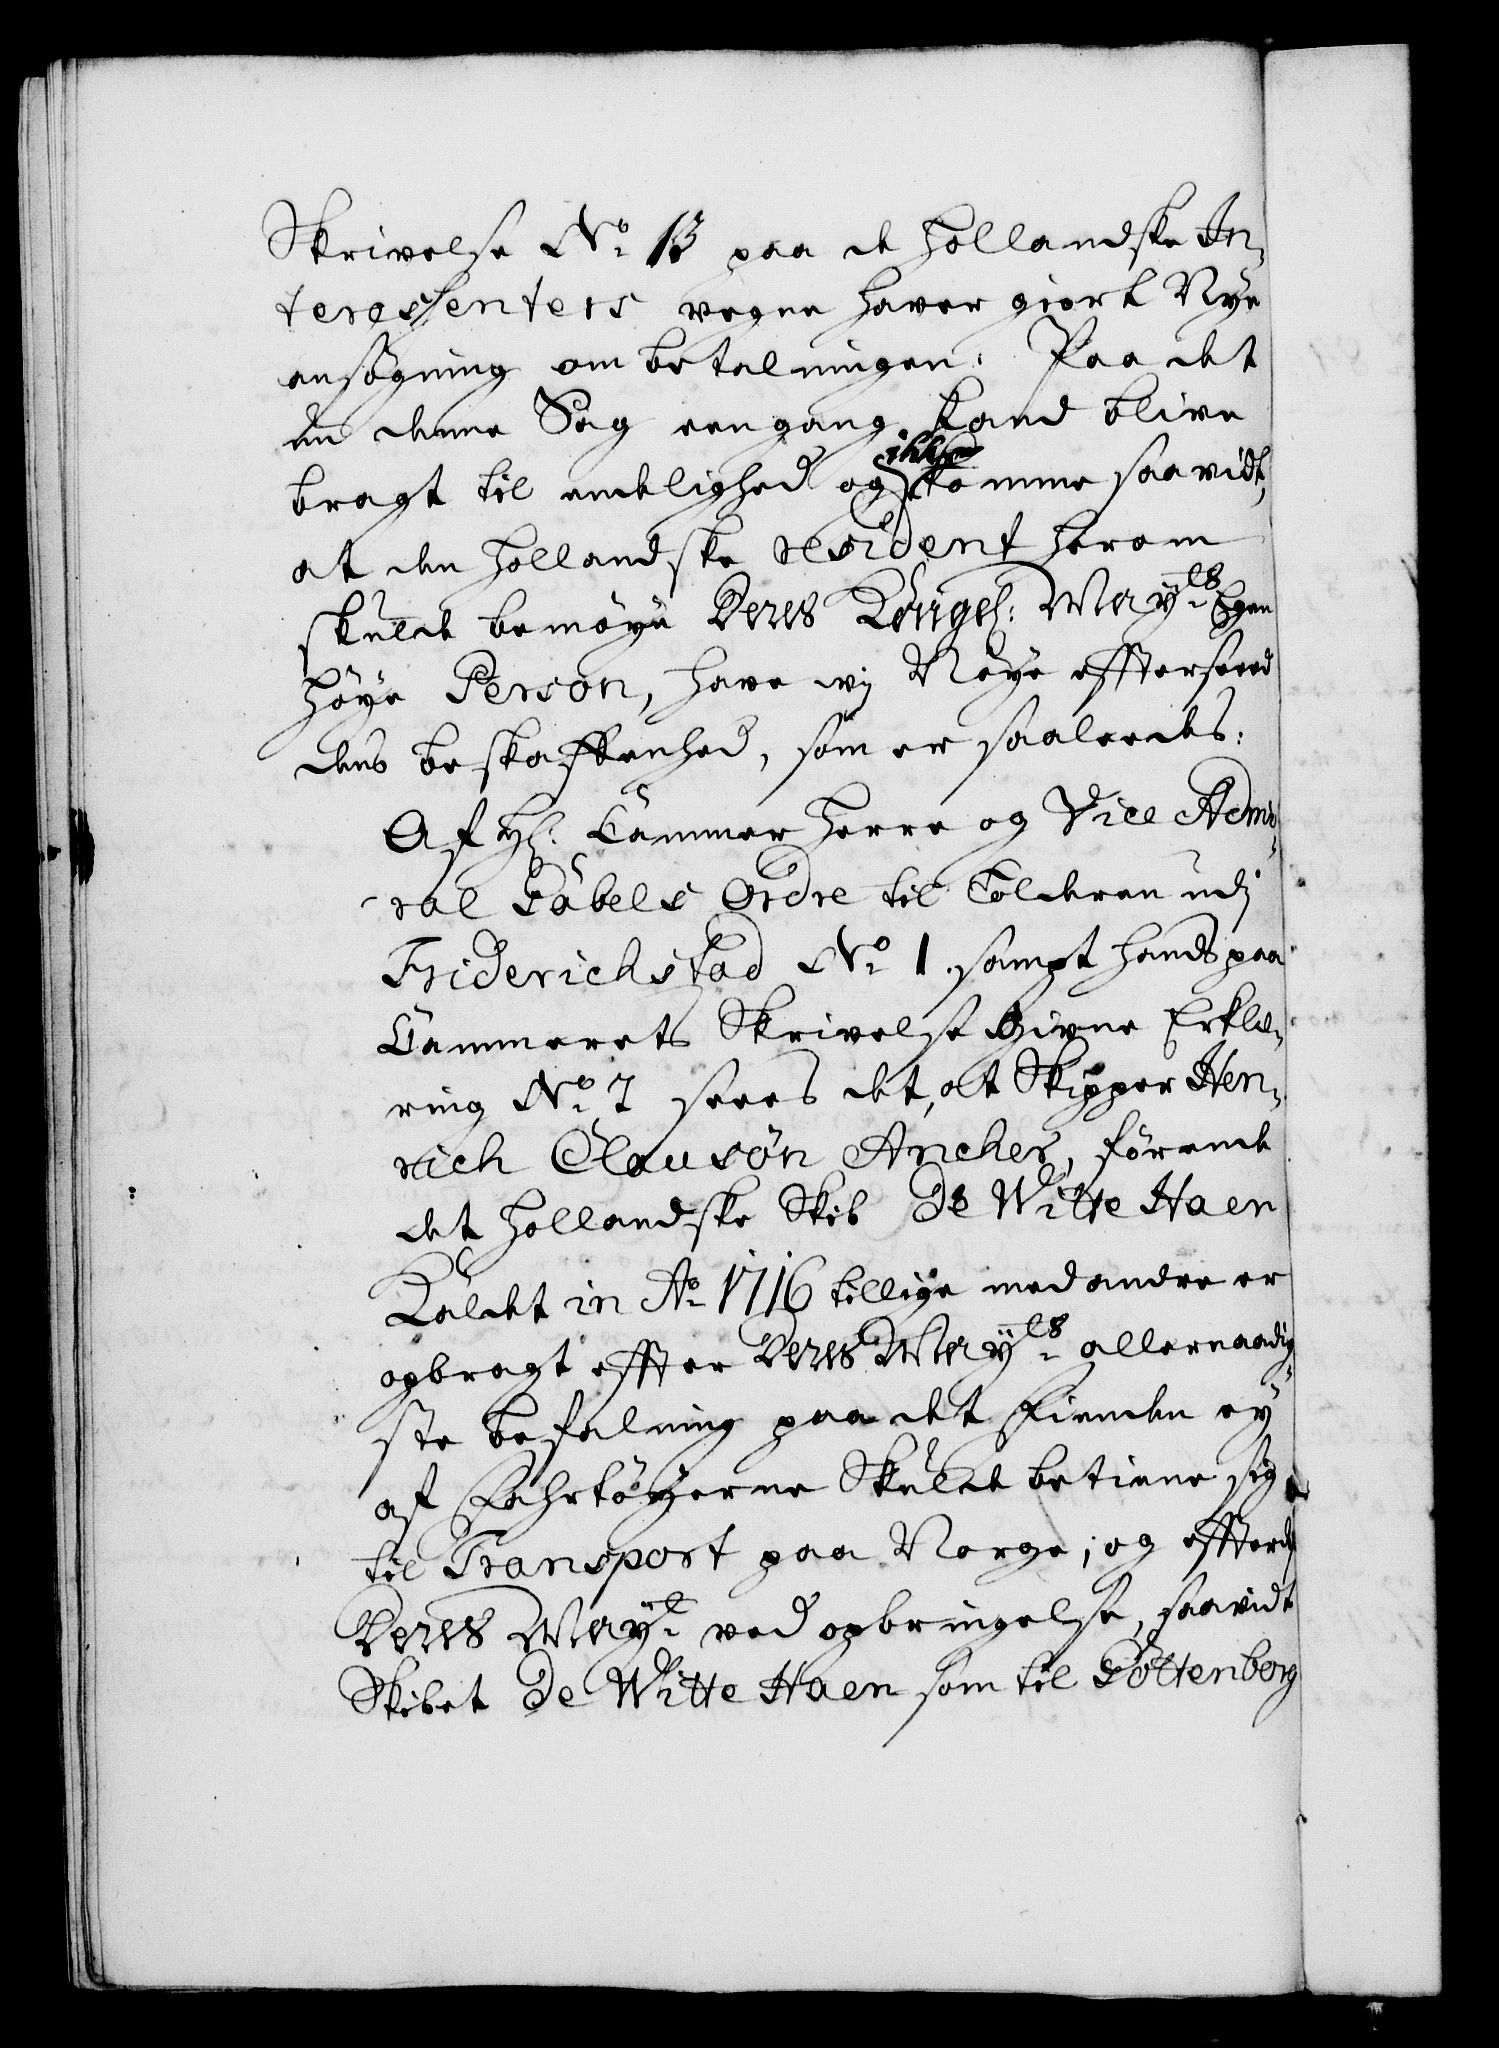 Skrivelse No. 13 paa de Hollandske In-
teressenters vegne haver giort Nye
ansøgning om betalningen: Paa det
nu denne Sag eengang kand blive
bragt til endelighed og ikke komme saavidt,
at den Hollandske resident herom
skulde bemøye Deres Kongel: Mayts Egen
høye Person, have vij Nøye effterseed
dens beskaffenhed, som er saaledes:
Af Hl: Cammer Herre og Vice Admi-
ral Gabels Ordre til Tolderen udj
Friderichstad No. 1. sampt hands paa
Cammerets Skrivelse Givne Erklæ-
ring No. 7 sees det, at Skipper Hen-
rich Clausøn Ancher, førende
det Hollandske Skib De Witte Haen
Kaldet in Ao. 1716 tillige med andre er
opbragt effter Deres Mayts allernaadig-
ste befalning paa det Fienden ey
af Fahrtøyerne Skulde betiene sig
til Transport paa Norge; og effterdj
Deres Mayt ved opbringelse, saavidt
Skibet De Witte Haen som til Gøttenborg